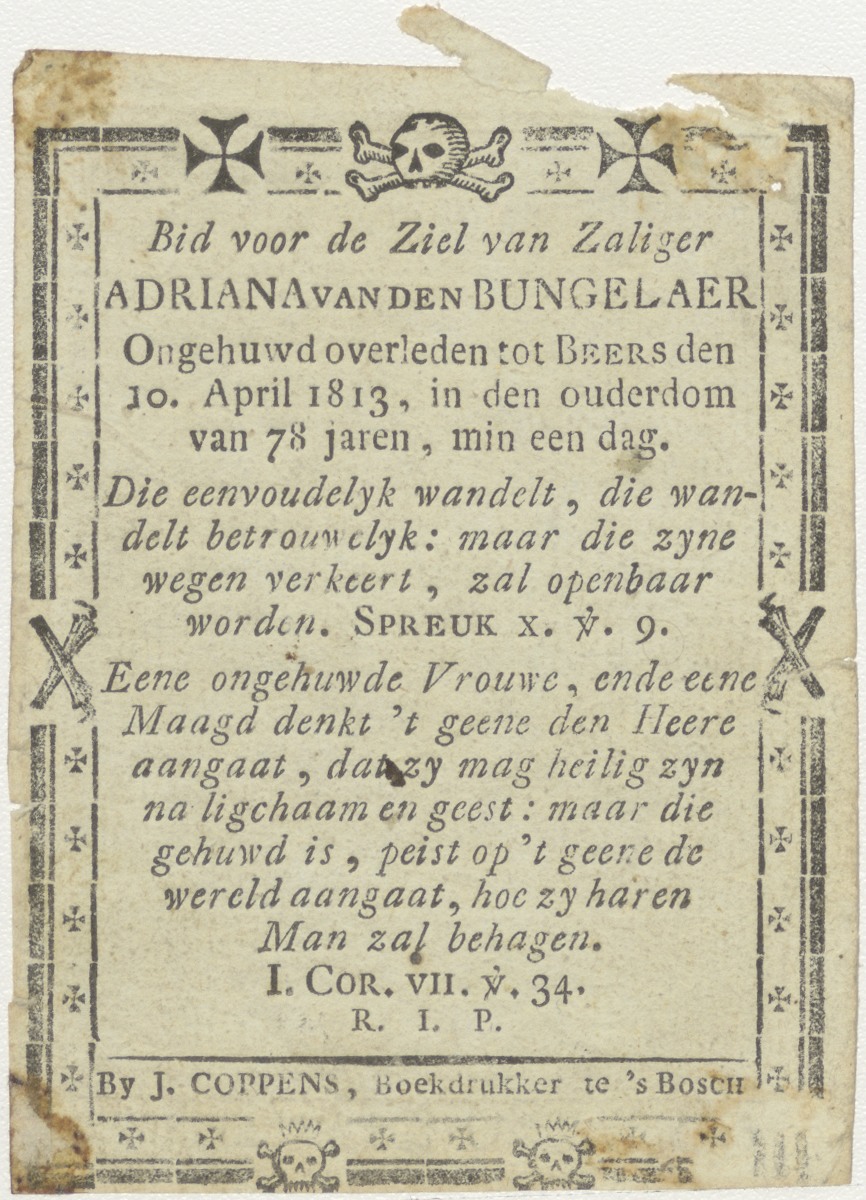 Bid voor de Ziel van Zaliger
ADRIANA VAN DEN BUNGELAER
Ongehuwd overleden tot BEERS den
10. April 1813, in den ouderdom
van 78 jaren, min een dag.
Die eenvoudelyk wandelt, die wan-
delt betrouwelyk: maar die zyne
wegen verkeert, zal openbaar
worden. SPREUK X. ℣. 9.
Eene ongehuwde Vrouwe, ende eene
Maagd denkt 't geene den Heere
aangaat, dat zy mag heilig zyn
na ligchaam en geest: maar die
gehuwd is, peist op 't geene de
wereld aangaat, hoe zy haren
Man zal behagen.
I. COR. VII. ℣. 34.
R. I. P.
By J. COPPENS, Boekdrukker te 's BOSCH